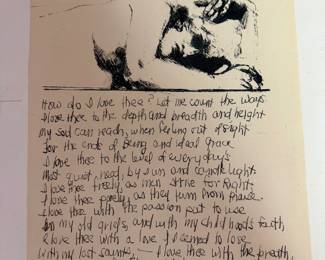 How do I love thee? Let me count the ways
I love thee to the depth and breadth and height
my soul can reach, when feeling out of sight
for the ends of being and ideal grace
I love thee to the level of everyday's
most quiet need, by sun and candle light
I love thee freely, as men strive for Right
I love thee purely, as they turn from Praise
I love thee with the passion put to use
in my old griefs, and with my childhood's faith
I love thee with a love I seemed to lose
with my lost saints, — I love thee with the breath,